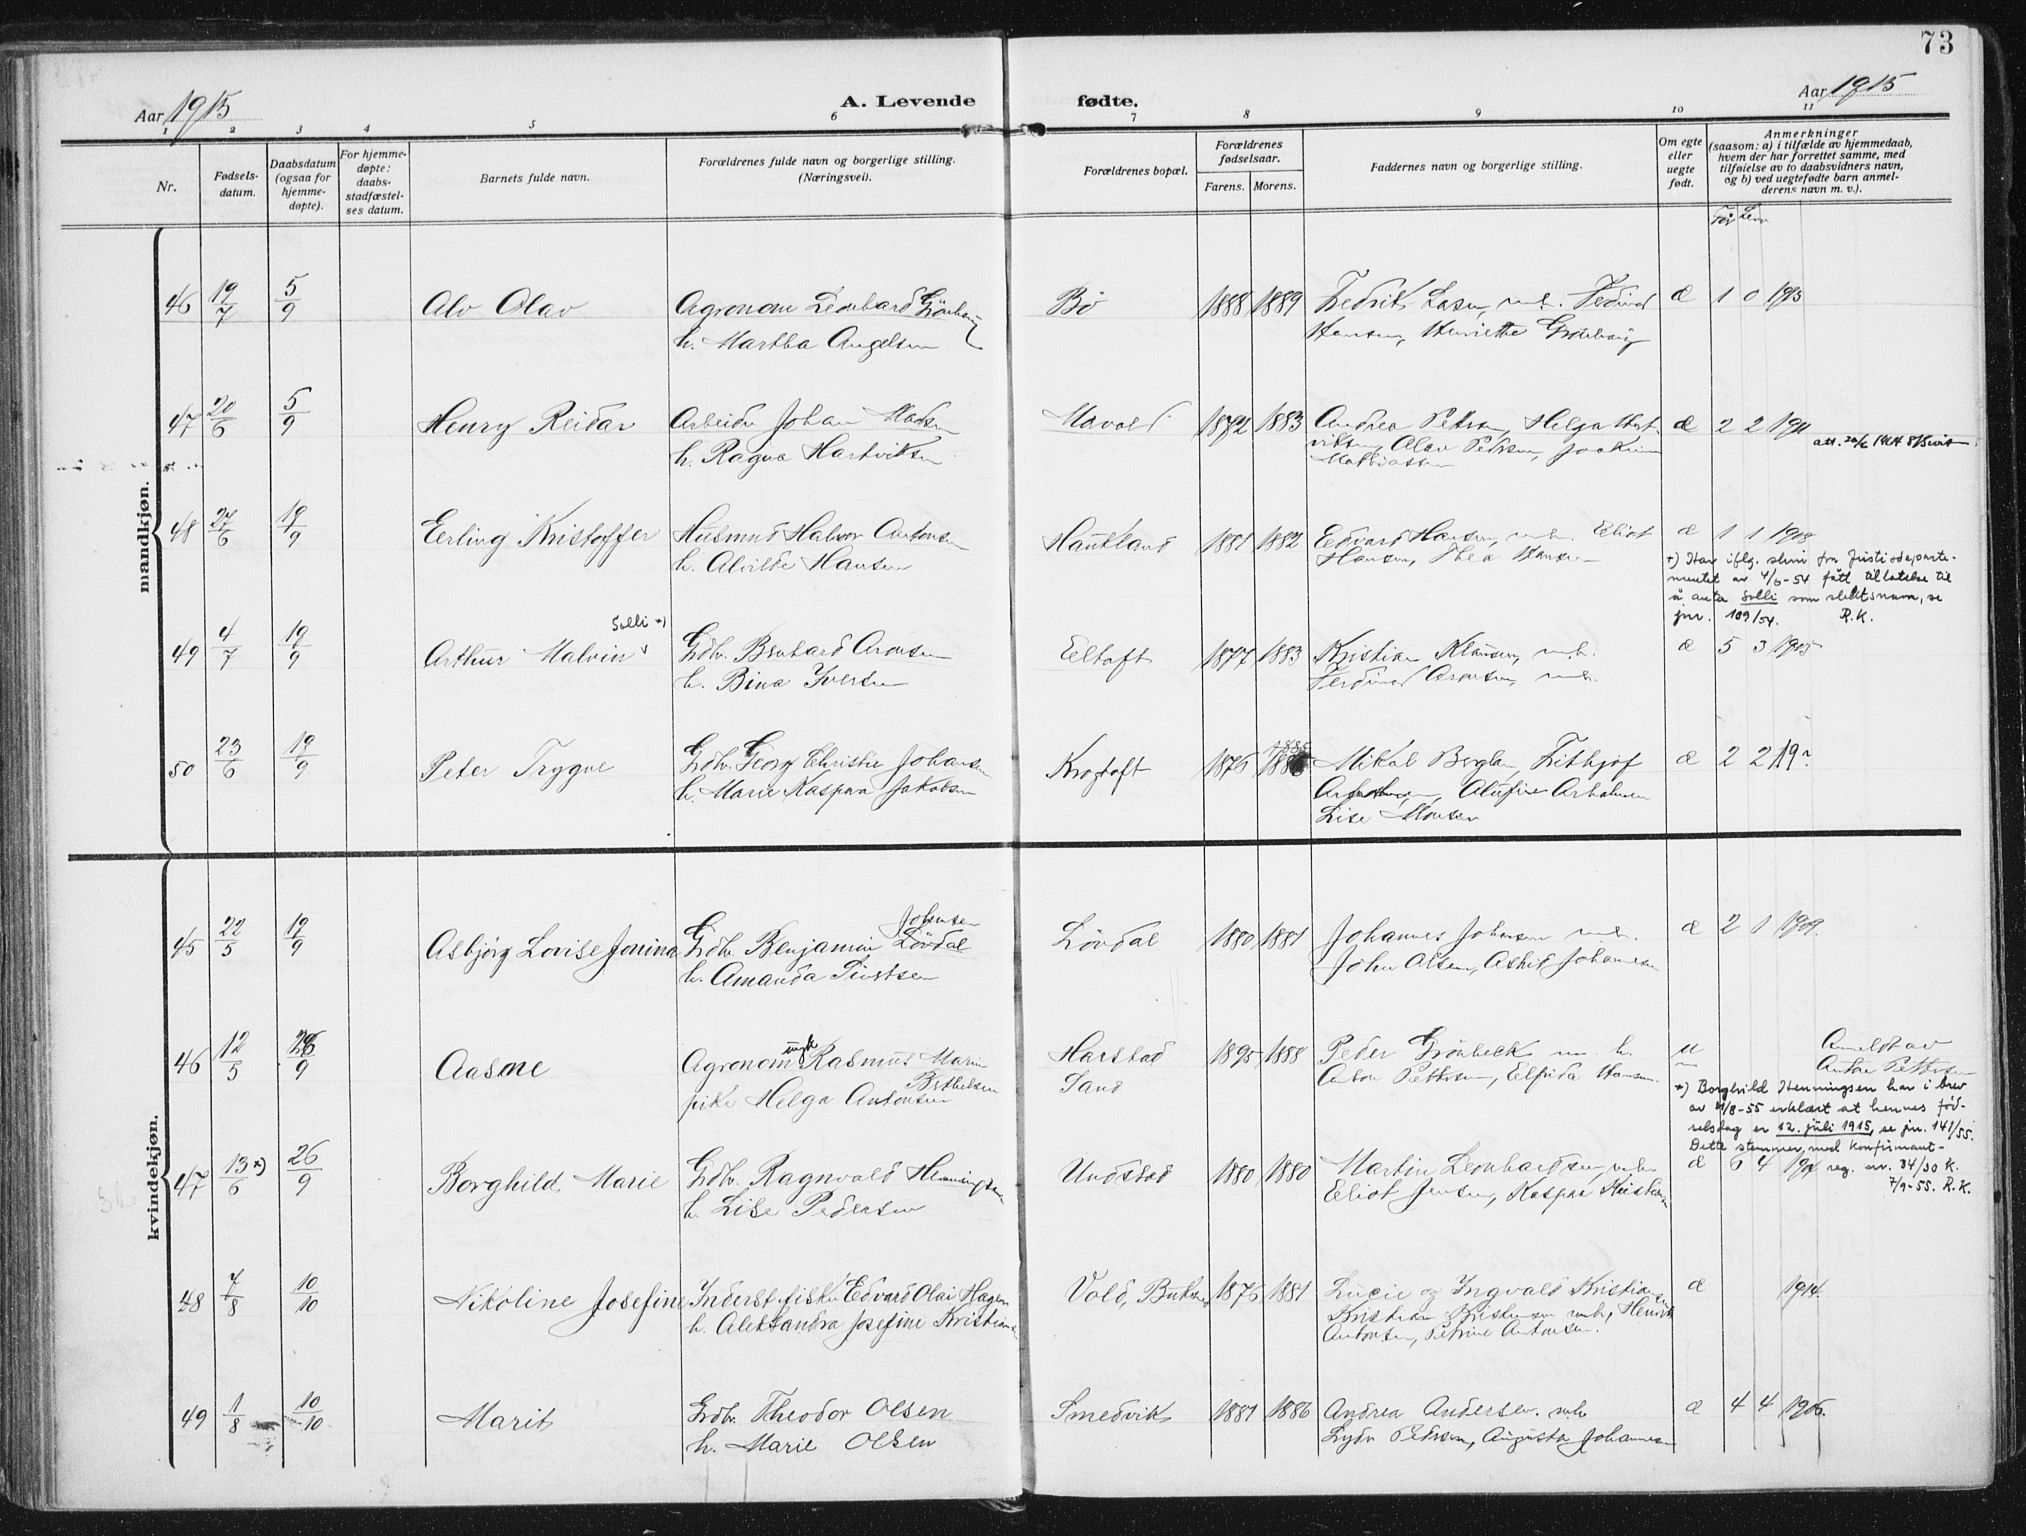 73
Aar 1915
A. Levende fødte.
Aar 1915
1 2 3 4 5 6 7 8 9 10 11
Nr.
Fødsels-
datum.
Daabsdatum
(ogsaa for
hjemme-
døpte).
For hjemme-
døpte:
daabs-
stadfæstel-
ses datum.
Barnets fulde navn.
Forældrenes fulde navn og borgerlige stilling.
(Næringsvei).
Forældrenes bopæl.
Forældrenes
fødselsaar.
Farens. Morens.
Faddernes navn og borgerlige stilling.
Om egte
eller
uegte
født.
Anmerkninger
(saasom: a) i tilfælde av hjemmedaab,
hvem der har forrettet samme, med
tilføielse av to daabsvidners navn,
og b) ved uegtefødte barn anmel-
derens navn m. v.).
mandkjøn.
46 19/7 5/9 Alv Olav Agronom Leonhard Grönbeng Bö 1888 1889 Fredrik Lasen, m.h. Ferdinad æ 1 0 1913
h. Martha Angelsen Hansen, Henriette
47 20/6 5/9 Henry Reidar Arbeider Johan Madsen 1872 1883 Andrea Petersen, Helga Hart- æ 2 2 1911
h. Ragna Hartviksen viksen, Olav Pedersen, Joakim
Mathiassen
48 27/6 19/9 Eerling Kristoffer Husmand Halvor Antonsen Hautland 1881 1882 Edvard Hansen, m.h. Eliot æ 1 1 1908
h. Alvilde Hansen Hansen, Thea Hansen
+) Har iflg. skriv fra Justisdeparte-
mentet av 4/6-54 fått tillatelse til
å anta Solli som slektsnavn, se
jnr. 109/54. R.K.
Solli +)
49 4/7 19/9 Arthur Malvin Grdbr. Bernhard Aronsen Eeltoft 1877 1883 Kristian Klausen, m.h. æ 5 3 1905
h. Bina Iversen Ferdinad Aronsen, m.h.
50 23/6 19/9 Peter Trygve Grdbr. Georg Christie Johansen Krogtoft 1876 1885 Mikal Bergland, Fithjof æ 2 2 19?
h. Marie Kaspara Jakobsen
Lise Monsen
kvindekjøn.
45 22/5 19/9 Asbjörg Lovise Jonina Grdbr. Benjamin Lövdal Johnsen Lövdal 1880 1881 Johannes Johansen m.h. æ 2 1 1909.
h. Amanda John Olsen, Johannesen
46 12/5 26/9 Aasne Agronom ungk Rasmus Marin Berthelsen Harstad 1895 1888 Peder Grönbeck m. h. u Anmeldt av
pike Helga Antonsen Sand Anton Pettersen, Elfrida Hansen. Anton Pettersen
+) Borghild Henningsen har i brev
av 21/8-55 erklært at hennes fød-
selsdag er 12. juli 1915, se jnr. 141/55.
Dette stemmer med konfirmant-
reg. nr. 34/30 K.
7/9-55. R.K.
47 13/6 +) 26/9 Borghild Marie Grdbr. Ragnvald Henningsen Undstad 1880 1880 Martin Leonhardsen, m.h. æ 6 4
h. Lise Pedersen Eliot Jensen, Kaspara
48 7/8 10/10 Nikoline Josefine Inderst fisker Edvard Olai Hagen Vold, 1876 1881 Lucie og Ingvald Kristiansen æ 1914.
h. Aleksandra Josefine Kristiansen Kristian Kristensen m.h., Henrik
Antonsen, Petrine Antonsen.
49 1/8 10/10 Marit Grdbr. Theodor Olsen Smedvik 1881 1886 Andrea Andersen m.h. æ 4 4 1906.
h. Marie Olsen Lydia Petersen, Augusta Johannesen